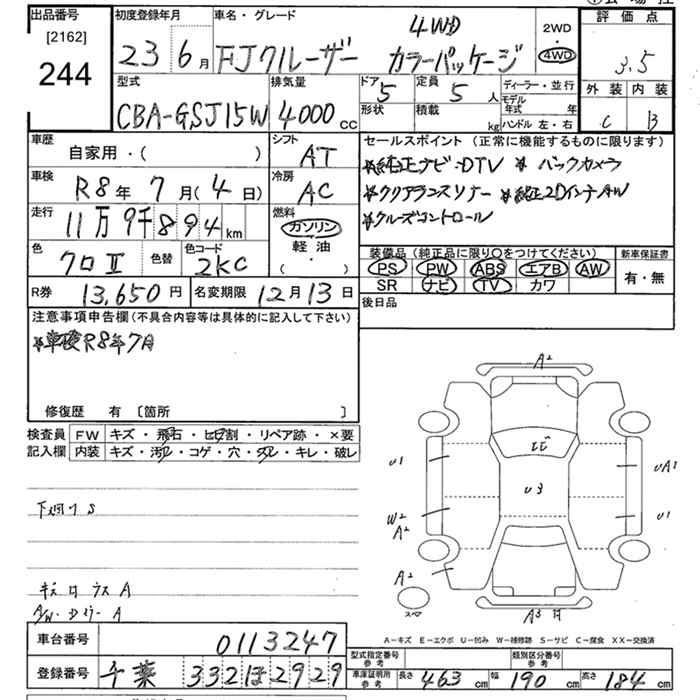 出品番号
[2162]
244
初度登録年月
23 6月
車名・グレード
FJクルーザー 4WD カラーパッケージ
2WD
・
4WD
評価点
3.5
外装 内装
C B
型式
CBA-GSJ15W
排気量
4000cc
ドア
5
形状
定員
5人
積載
kg
ディーラー・並行
モデル年式 年
ハンドル 左・右
車歴
自家用・( )
シフト
AT
車検
R8年 7月(4日)
冷房
AC
走行
11万9千894km
燃料
ガソリン
軽油
( )
色
クロⅡ
色替
色コード
2KC
セールスポイント (正常に機能するものに限ります)
*純正ナビ・DTV * バックカメラ
*クリアランスソナー *純正20インチAW
*クルーズコントロール
装備品 (純正品に限り○をつけてください)
PS PW ABS エアB AW
SR ナビ TV カワ
新車保証書
有・無
R券
13,650円
名変期限
12月13日
後日品
注意事項申告欄(不具合内容等は具体的に記入して下さい)
*車検R8年7月
修復歴 有 〔箇所 〕
検査員記入欄
FW キズ・飛石・ヒビ割・リペア跡・×要
内装 キズ・汚レ・コゲ・穴・スレ・キレ・破レ
下廻り S
キズ ロ ウス A
A/W・
A
A2
U1
UA1
U3
W2
A2
U1
A2
スペ
A3
A-キズ E-エクボ U-凹み W-補修跡 S-サビ C-腐食 XX-交換済
車台番号
0113247
登録番号
千葉 332ほ2929
型式指定番号
参考
類別区分番号
参考
車庫証明用
参考
長さ 463cm
幅 190cm
高さ 184cm